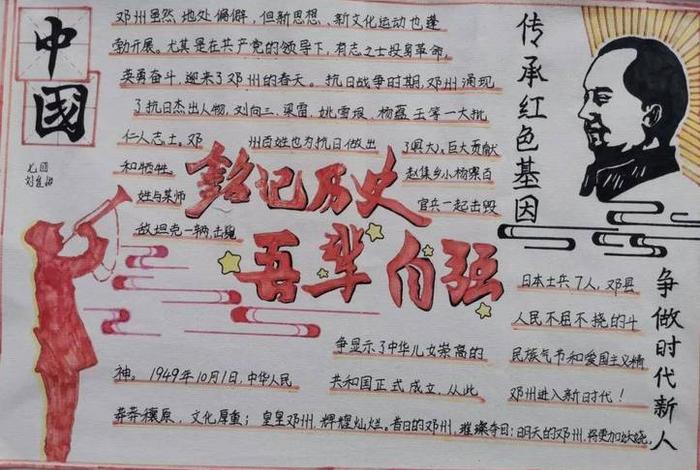 中
國
邓州虽然地处偏僻,但新思想、新文化运动也蓬
勃开展。尤其是在共产党的领导下,有志之士投身革命,
英勇奋斗,迎来了邓州的春天。抗日战争时期,邓州涌现
了抗日杰出人物,刘向三、梁雷、姚雪垠、杨蕴玉等一大批
仁人志士。邓 州百姓也为抗日做出 了巨大贡献
和牺牲。 赵集乡小杨寨百
姓与某师 官兵一起击毁
敌坦克一辆,击毙
日本士兵7人,邓县
人民不屈不挠的斗
争显示了中华儿女崇高的 民族气节和爱国主义精
神。1949年10月1日,中华人民 共和国正式成立,从此 邓州进入新时代!
莽莽穰原,文化厚重;皇皇邓州,辉煌灿烂。昔日的邓州,璀璨夺目;明天的邓州,将更加妖娆。
铭记历史
吾辈自强
传承红色基因
争做时代新人